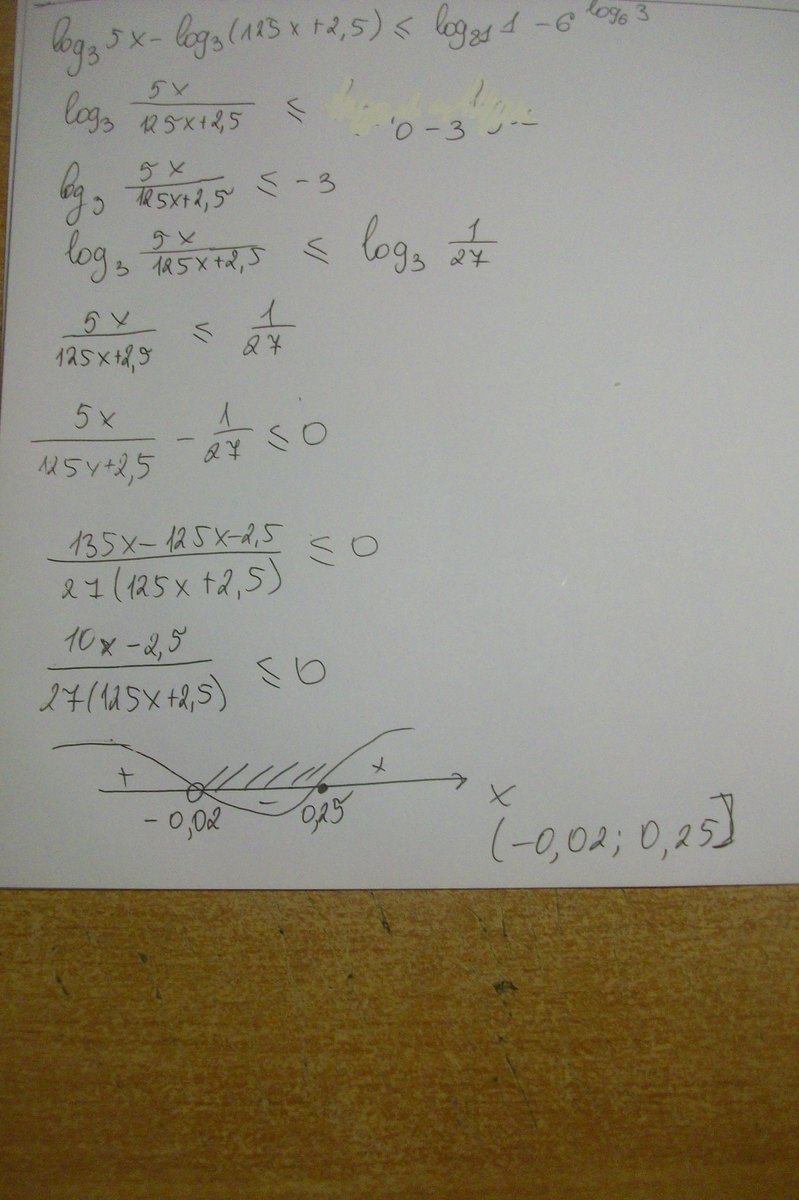 log₃ 5x − log₃(125x+2,5) ≤ log₈₁ 1 − 6^(log₆ 3)
log₃ 5x/(125x+2,5) ≤ 0 − 3
log₃ 5x/(125x+2,5) ≤ −3
log₃ 5x/(125x+2,5) ≤ log₃ 1/27
5x/(125x+2,5) ≤ 1/27
5x/(125x+2,5) − 1/27 ≤ 0
(135x−125x−2,5)/(27(125x+2,5)) ≤ 0
(10x−2,5)/(27(125x+2,5)) ≤ 0
+ − +
−0,02 0,25 x
(−0,02; 0,25]